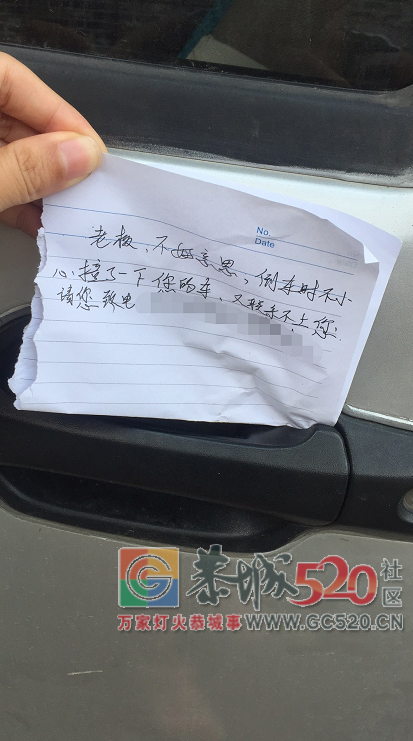 No.
Date
老板,不好意思,倒车时不小
心撞了一下您的车,又联系不上您.
请您致电
G 恭城520社区
万家灯火恭城事 WWW.GC520.CN